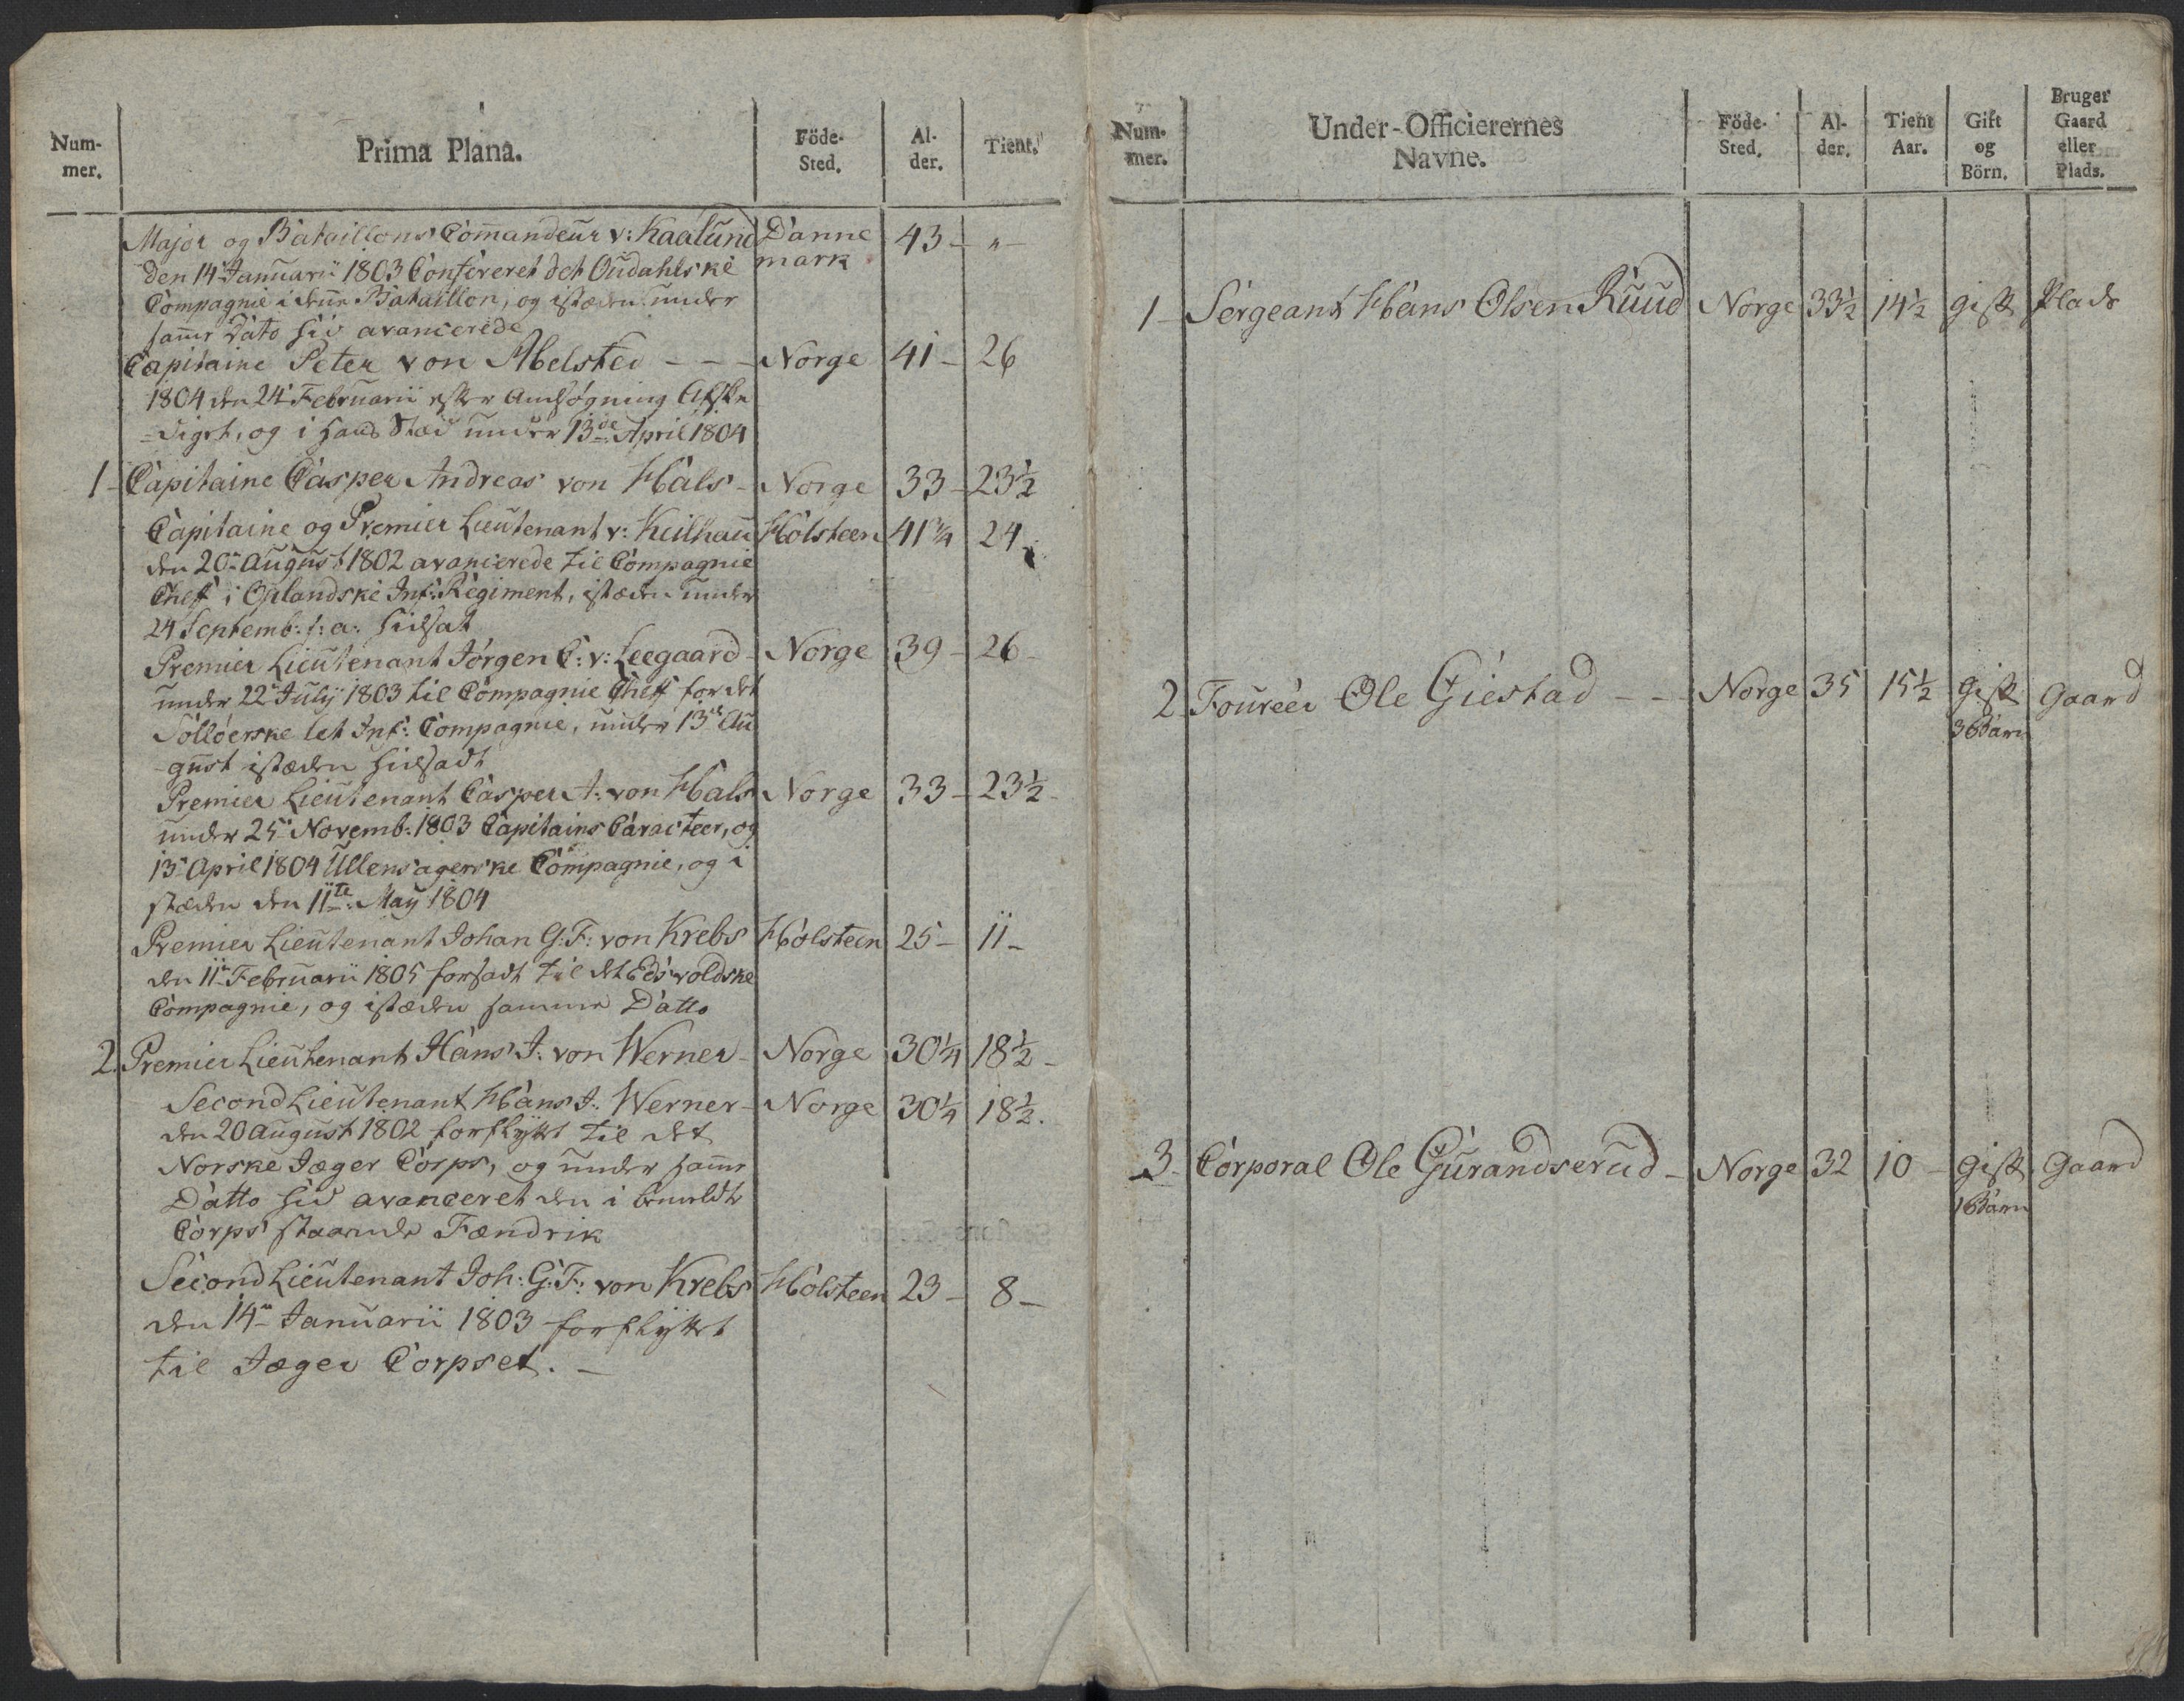 Num-
mer.
Prima Plana.
Föde-
Sted.
Al-
der.
Tient.
Major og Bataillons Comandeur v: Kaalund Danne 43 - " -
den 14 Januarii 1803 Confereret det Oudahlske mark
Compagnie i denne Bataillon, og istæden under
samme Dato hid avancerede
Capitaine Peter von Abelsted - - - Norge 41 - 26
1804 den 24 Februarii efter Ansøgning Afske
-diget, og i hans Stæd under 13de April 1804
1 - Capitaine Casper Andreas von Hals - Norge 33 - 23½
Capitaine og Premier Lieutenant v: Keilhau Holsteen 41¾ 24 -
den 20 August 1802 avancerede til Compagnie
Cheff i Oplandske Inf: Regiment, istæden under
24 Septemb: s: a: hidsat
Premier Lieutenant Jörgen C: v: Leegaard - Norge 39 - 26 -
under 22 July 1803 til Compagnie Cheff for det
Sollöerske let Inf: Compagnie, under 13de Au
-gust istæden hidsadt
Premier Lieutenant Casper A: von Hals Norge 33 - 23½ -
under 25 Novemb: 1803 Capitains Caracteer, og
13 April 1804 Ullensagerske Compagnie, og i
stæden den 11te May 1804
Premier Lieutenant Johan G: F: von Krebs Holsteen 25 - 11 -
den 11 Februarii 1805 forsadt til det Edsvoldske
Compagnie, og istæden samme Datto
2. Premier Lieutenant Hans J: von Werner - Norge 30¼ 18½ -
Second Lieutenant Hans J: Werner - Norge 30¼ 18½.
den 20 August 1802 forflyttet til det
Norske Jæger Corps, og under samme
Datto hid avanceret den i bemeldte
Corps staaende Fændrik
Second Lieutenant Joh: G: F: von Krebs Holsteen 23 - 8 -
den 14 Januarii 1803 forflyttet
til Jæger Corpset. -
Num-
mer.
Under-Officierernes
Navne.
Föde-
Sted.
Al-
der.
Tient
Aar.
Gift
og
Börn.
Bruger
Gaard
eller
Plads.
1 - Sergeant Hans Olsen Ruud Norge 33½ 14½ gift Plads
2 - Foureer Ole Giestad - - Norge 35 15½ Gift Gaard
3 Børn
3 - Corporal Ole Gurandserud - Norge 32 10 - Gift Gaard
1 Barn